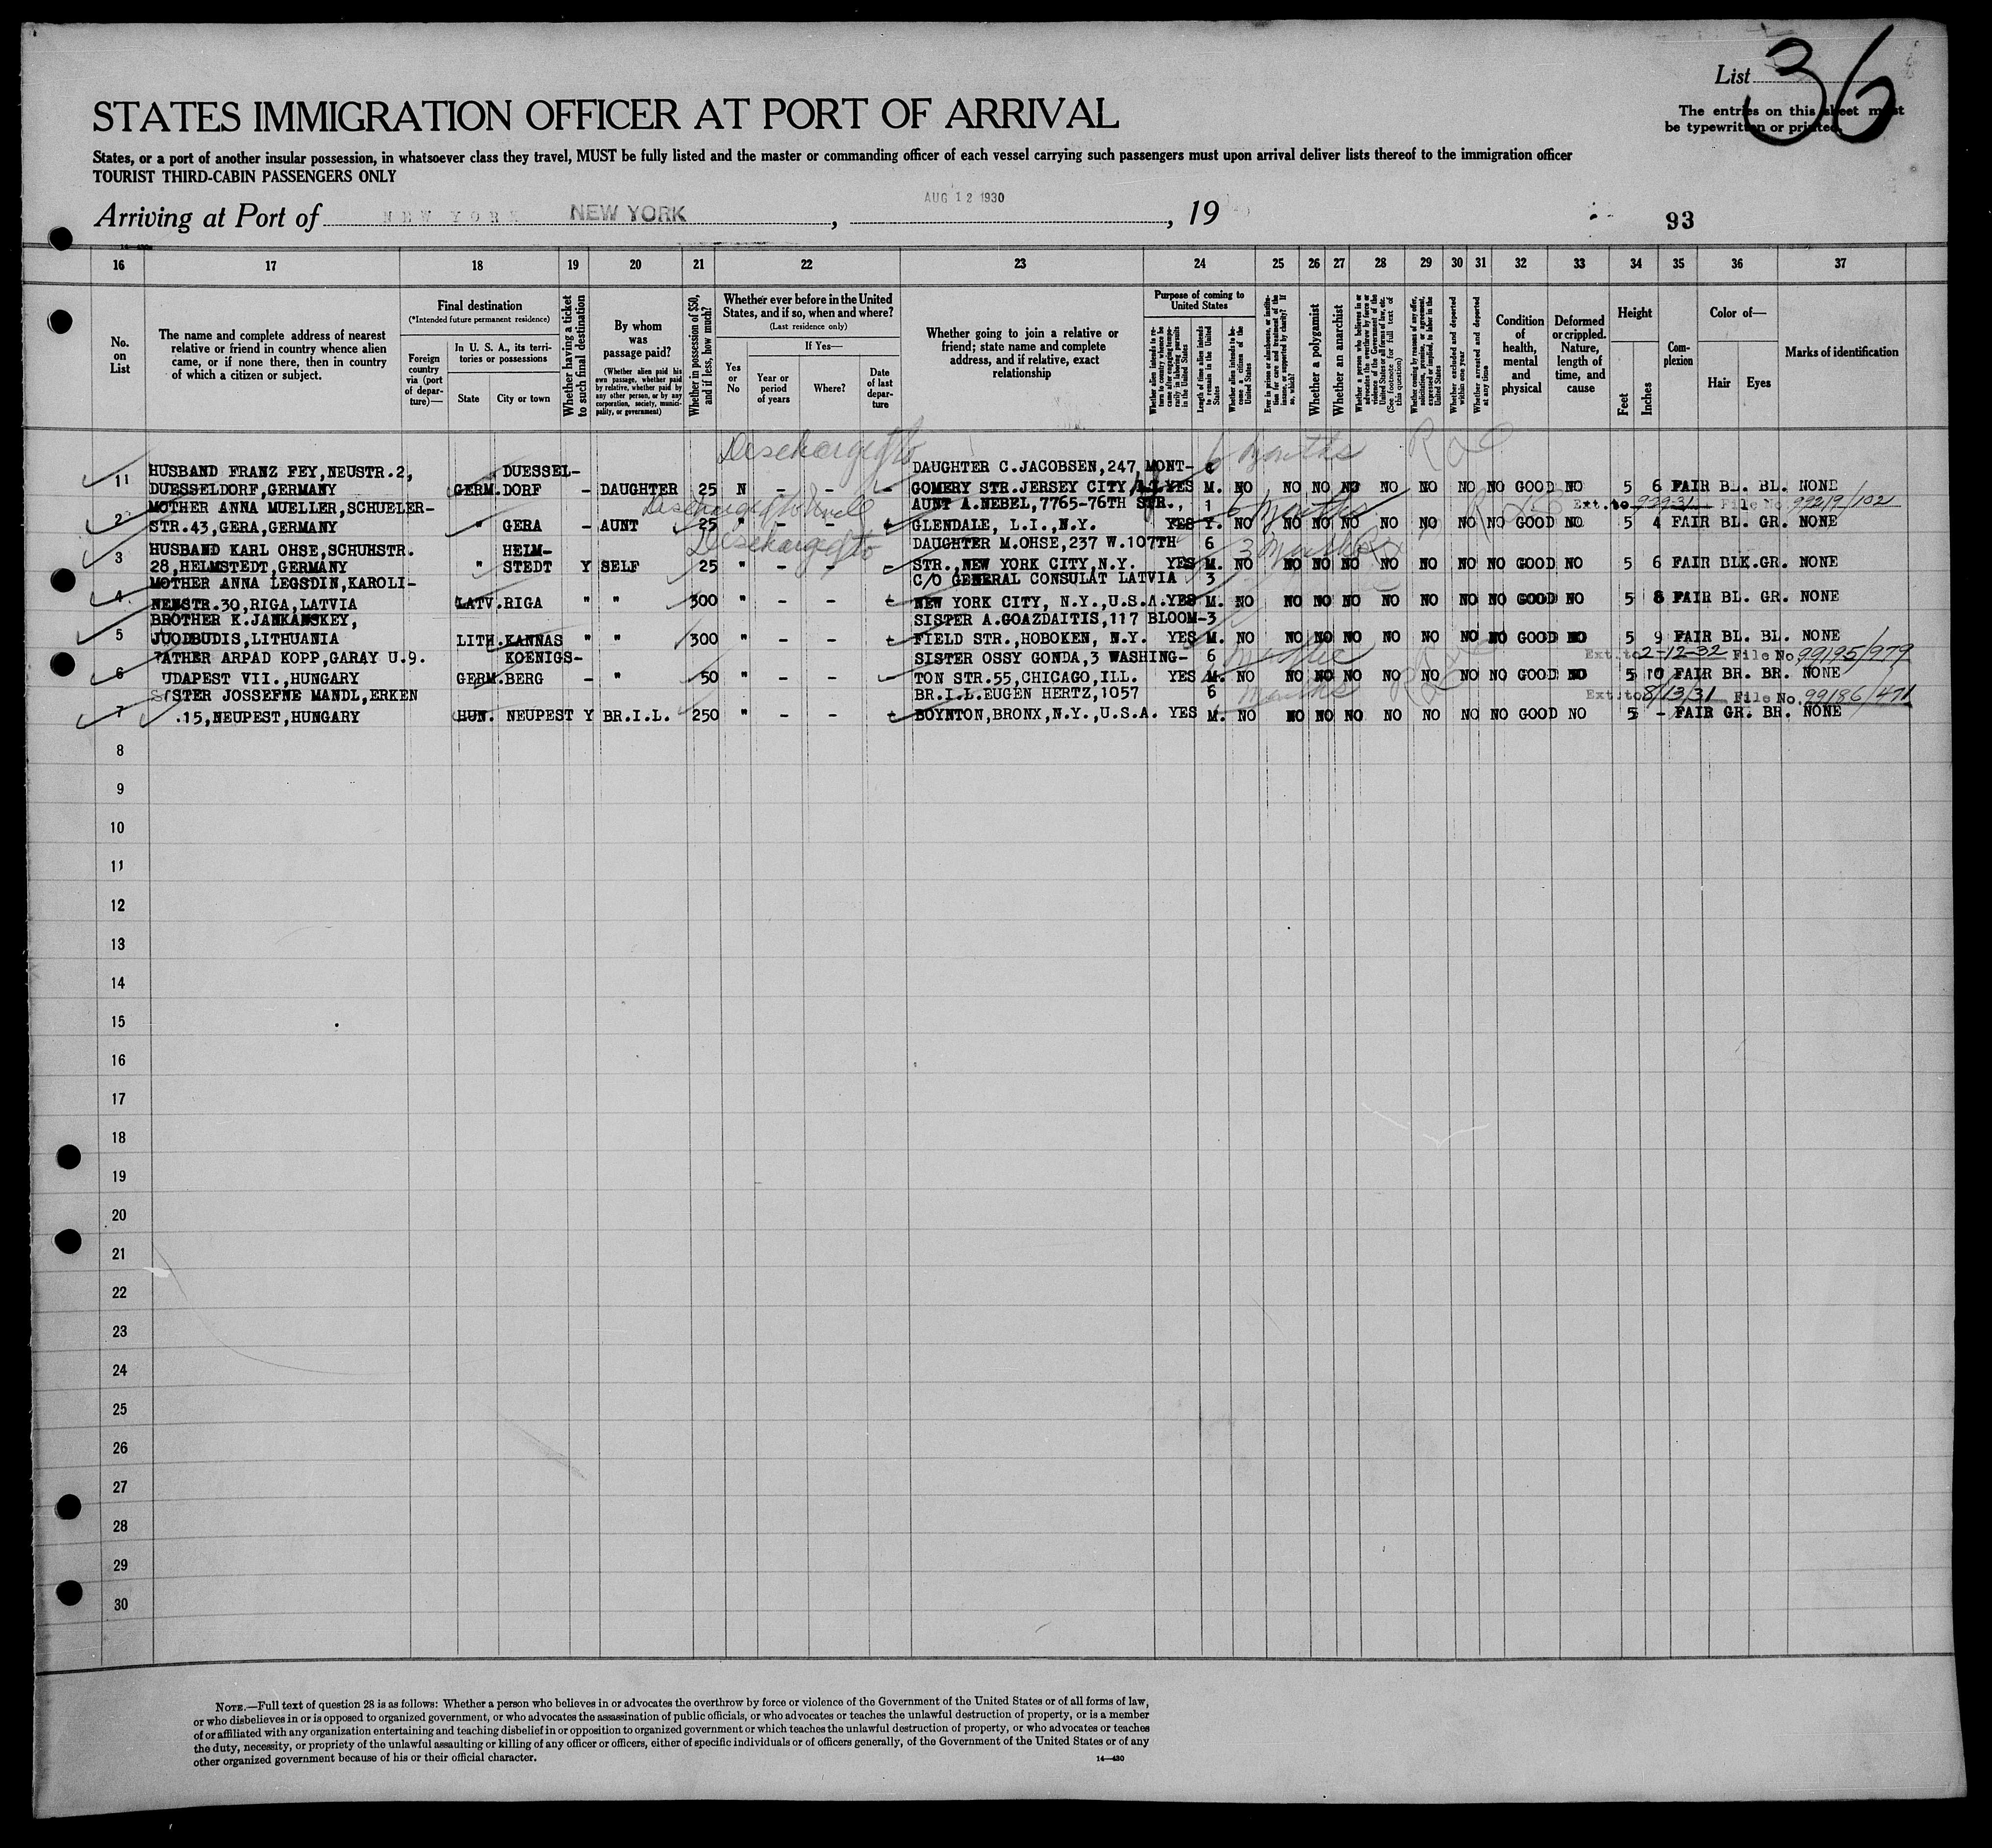 List 36
The entries on this sheet must
be typewritten or printed.
STATES IMMIGRATION OFFICER AT PORT OF ARRIVAL
States, or a port of another insular possession, in whatsoever class they travel, MUST be fully listed and the master or commanding officer of each vessel carrying such passengers must upon arrival deliver lists thereof to the immigration officer
TOURIST THIRD-CABIN PASSENGERS ONLY
Arriving at Port of NEW YORK NEW YORK, AUG 12 1930, 19
93
16 17 18 19 20 21 22 23 24 25 26 27 28 29 30 31 32 33 34 35 36 37
No. on List
The name and complete address of nearest
relative or friend in country whence alien
came, or if none there, then in country
of which a citizen or subject.
Final destination
(*Intended future permanent residence)
Foreign country via (port of departure)—
In U. S. A., its territories or possessions
State
City or town
Whether having a ticket to such final destination
By whom was passage paid?
(Whether alien paid his own passage, whether paid by relative, whether paid by any other person, or by any corporation, society, municipality, or government)
Whether in possession of $50, and if less, how much?
Whether ever before in the United
States, and if so, when and where?
(Last residence only)
Yes or No
If Yes—
Year or period of years
Where?
Date of last departure
Whether going to join a relative or
friend; state name and complete
address, and if relative, exact
relationship
Purpose of coming to
United States
Length of time alien intends to remain in the United States
Whether alien intends to become a citizen of the United States
Whether a polygamist
Whether an anarchist
Whether excluded and deported within one year
Whether arrested and deported at any time
Condition of health, mental and physical
Deformed or crippled. Nature, length of time, and cause
Height
Feet
Inches
Complexion
Color of—
Hair
Eyes
Marks of identification
Discharged to 6 months
HUSBAND FRANZ FEY,NEUSTR.2, DUESSEL- DAUGHTER C.JACOBSEN,247 MONT- 6
11 DUESSELDORF,GERMANY GERM. DORF - DAUGHTER 25 N - - - GOMERY STR.JERSEY CITY YES M. NO NO NO NO NO NO NO NO GOOD NO 5 6 FAIR BL. BL. NONE
Discharged to 6 months Ext. to File No. 99219/102
MOTHER ANNA MUELLER,SCHUELER- AUNT A.NEBEL,7765-76TH STR., 1
2 STR.43,GERA,GERMANY " GERA - AUNT 25 " - - GLENDALE, L.I.,N.Y. YES Y. NO NO NO NO NO NO NO NO GOOD NO 5 4 FAIR BL. GR. NONE
Discharged to 3 months
HUSBAND KARL OHSE,SCHUHSTR. HELM- DAUGHTER M.OHSE,237 W.107TH 6
3 28,HELMSTEDT,GERMANY " STEDT Y SELF 25 " - - - STR.,NEW YORK CITY,N.Y. YES M. NO NO NO NO NO NO NO NO GOOD NO 5 6 FAIR BLK.GR. NONE
MOTHER ANNA LEGSDIN,KAROLI- C/O GENERAL CONSULAT LATVIA 3
4 NENSTR.30,RIGA,LATVIA LATV.RIGA " " 300 " - - NEW YORK CITY, N.Y.,U.S.A.YES M. NO NO NO NO NO NO NO NO GOOD NO 5 8 FAIR BL. GR. NONE
BROTHER K.JANKANSKEY, SISTER A.GOAZDAITIS,117 BLOOM-3
5 JUODBUDIS,LITHUANIA LITH.KANNAS " " 300 " - - FIELD STR.,HOBOKEN, N.Y. YES M. NO NO NO NO NO NO NO NO GOOD NO 5 9 FAIR BL. BL. NONE
Ext. to 2-12-32 File No. 99195/979
FATHER ARPAD KOPP,GARAY U.9. KOENIGS- SISTER OSSY GONDA,3 WASHING- 6
6 UDAPEST VII.,HUNGARY GERM.BERG - " 50 " - - TON STR.55,CHICAGO,ILL. YES M. NO NO NO NO NO NO NO NO GOOD NO 5 10 FAIR BR. BR. NONE
months Ext. to 8/13/31 File No. 99186/471
SISTER JOSSEFNE MANDL,ERKEN BR.I.L.EUGEN HERTZ,1057 6
7 .15,NEUPEST,HUNGARY HUN. NEUPEST Y BR.I.L. 250 " - - BOYNTON,BRONX,N.Y.,U.S.A. YES M. NO NO NO NO NO NO NO NO GOOD NO 5 - FAIR GR. BR. NONE
8
9
10
11
12
13
14
15
16
17
18
19
20
21
22
23
24
25
26
27
28
29
30
NOTE.—Full text of question 28 is as follows: Whether a person who believes in or advocates the overthrow by force or violence of the Government of the United States or of all forms of law,
or who disbelieves in or is opposed to organized government, or who advocates the assassination of public officials, or who advocates or teaches the unlawful destruction of property, or is a member
of or affiliated with any organization entertaining and teaching disbelief in or opposition to organized government or which teaches the unlawful destruction of property, or who advocates or teaches
the duty, necessity, or propriety of the unlawful assaulting or killing of any officer or officers, either of specific individuals or of officers generally, of the Government of the United States or of any
other organized government because of his or their official character.
14—430